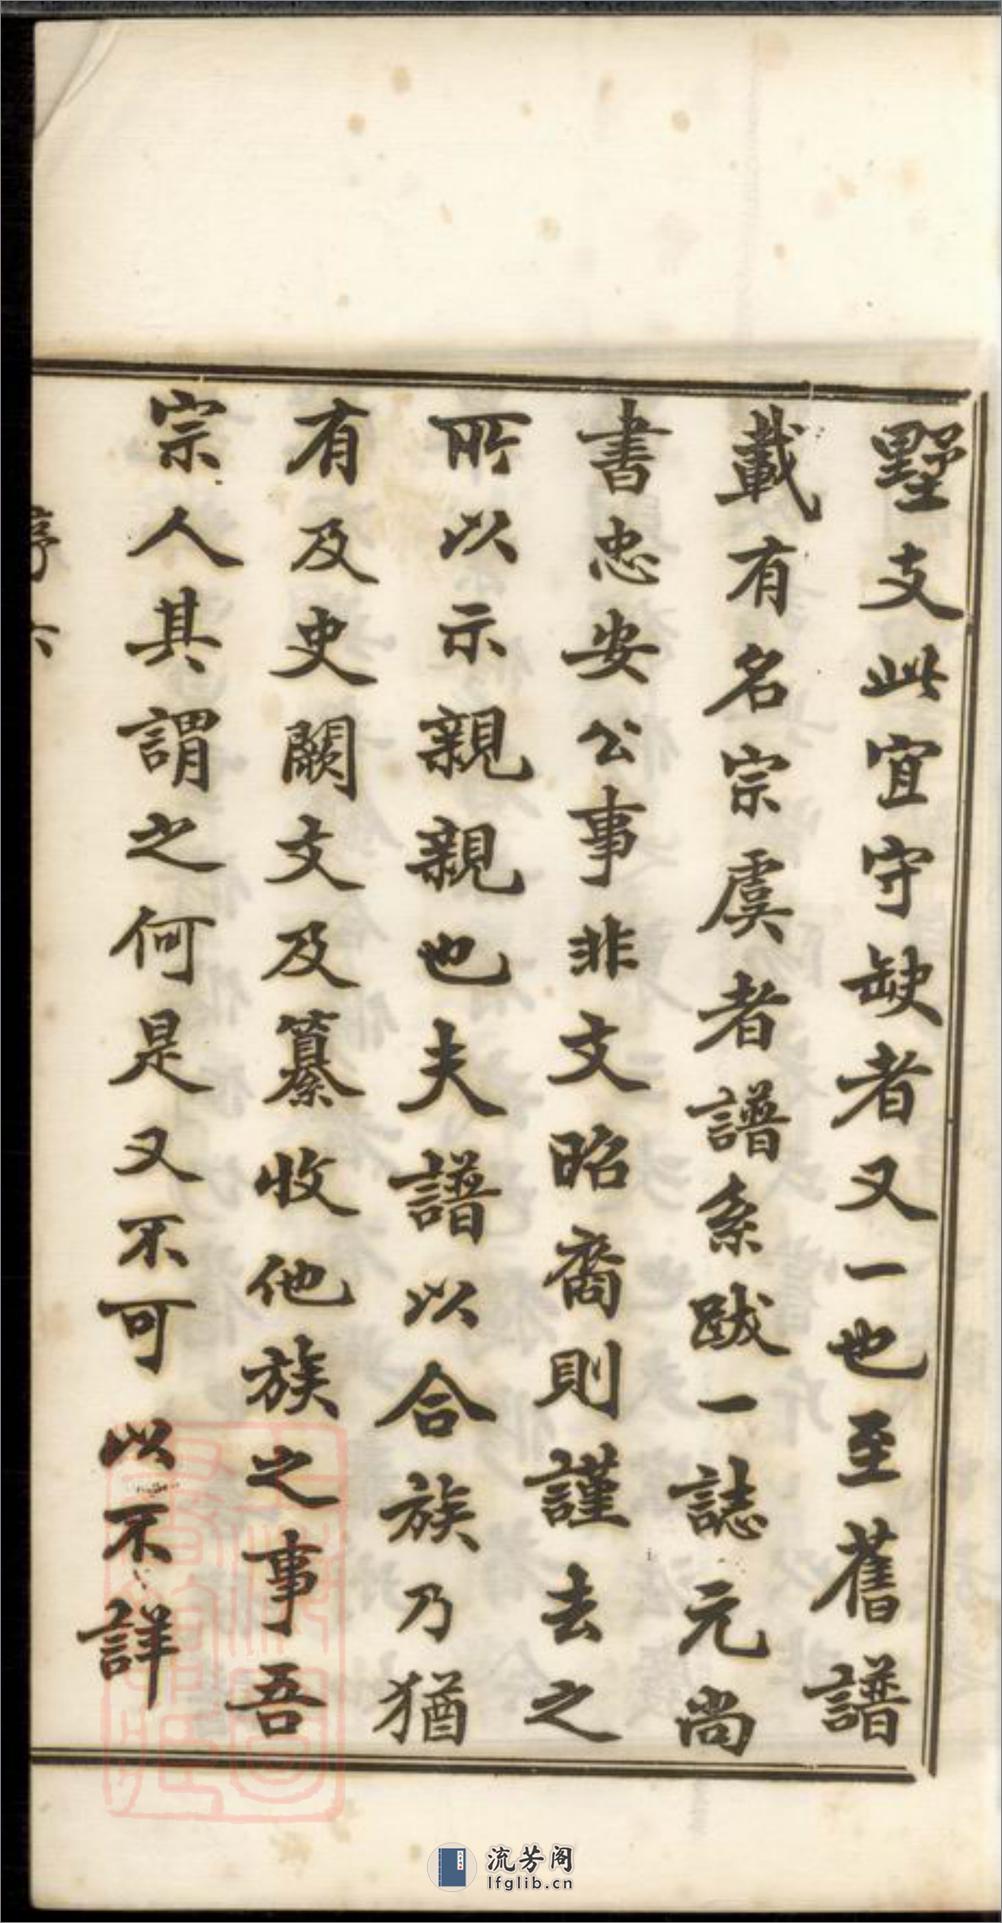 墅支此宜守缺者又一也至舊譜
載有名宗虞者譜系跋一誌元尚
書忠安公事非文昭裔則謹去之
所以示親親也夫譜以合族乃猶
有及史闕文及纂收他族之事吾
宗人其謂之何是又不可以不詳
序六
流芳阁
lfglib.cn